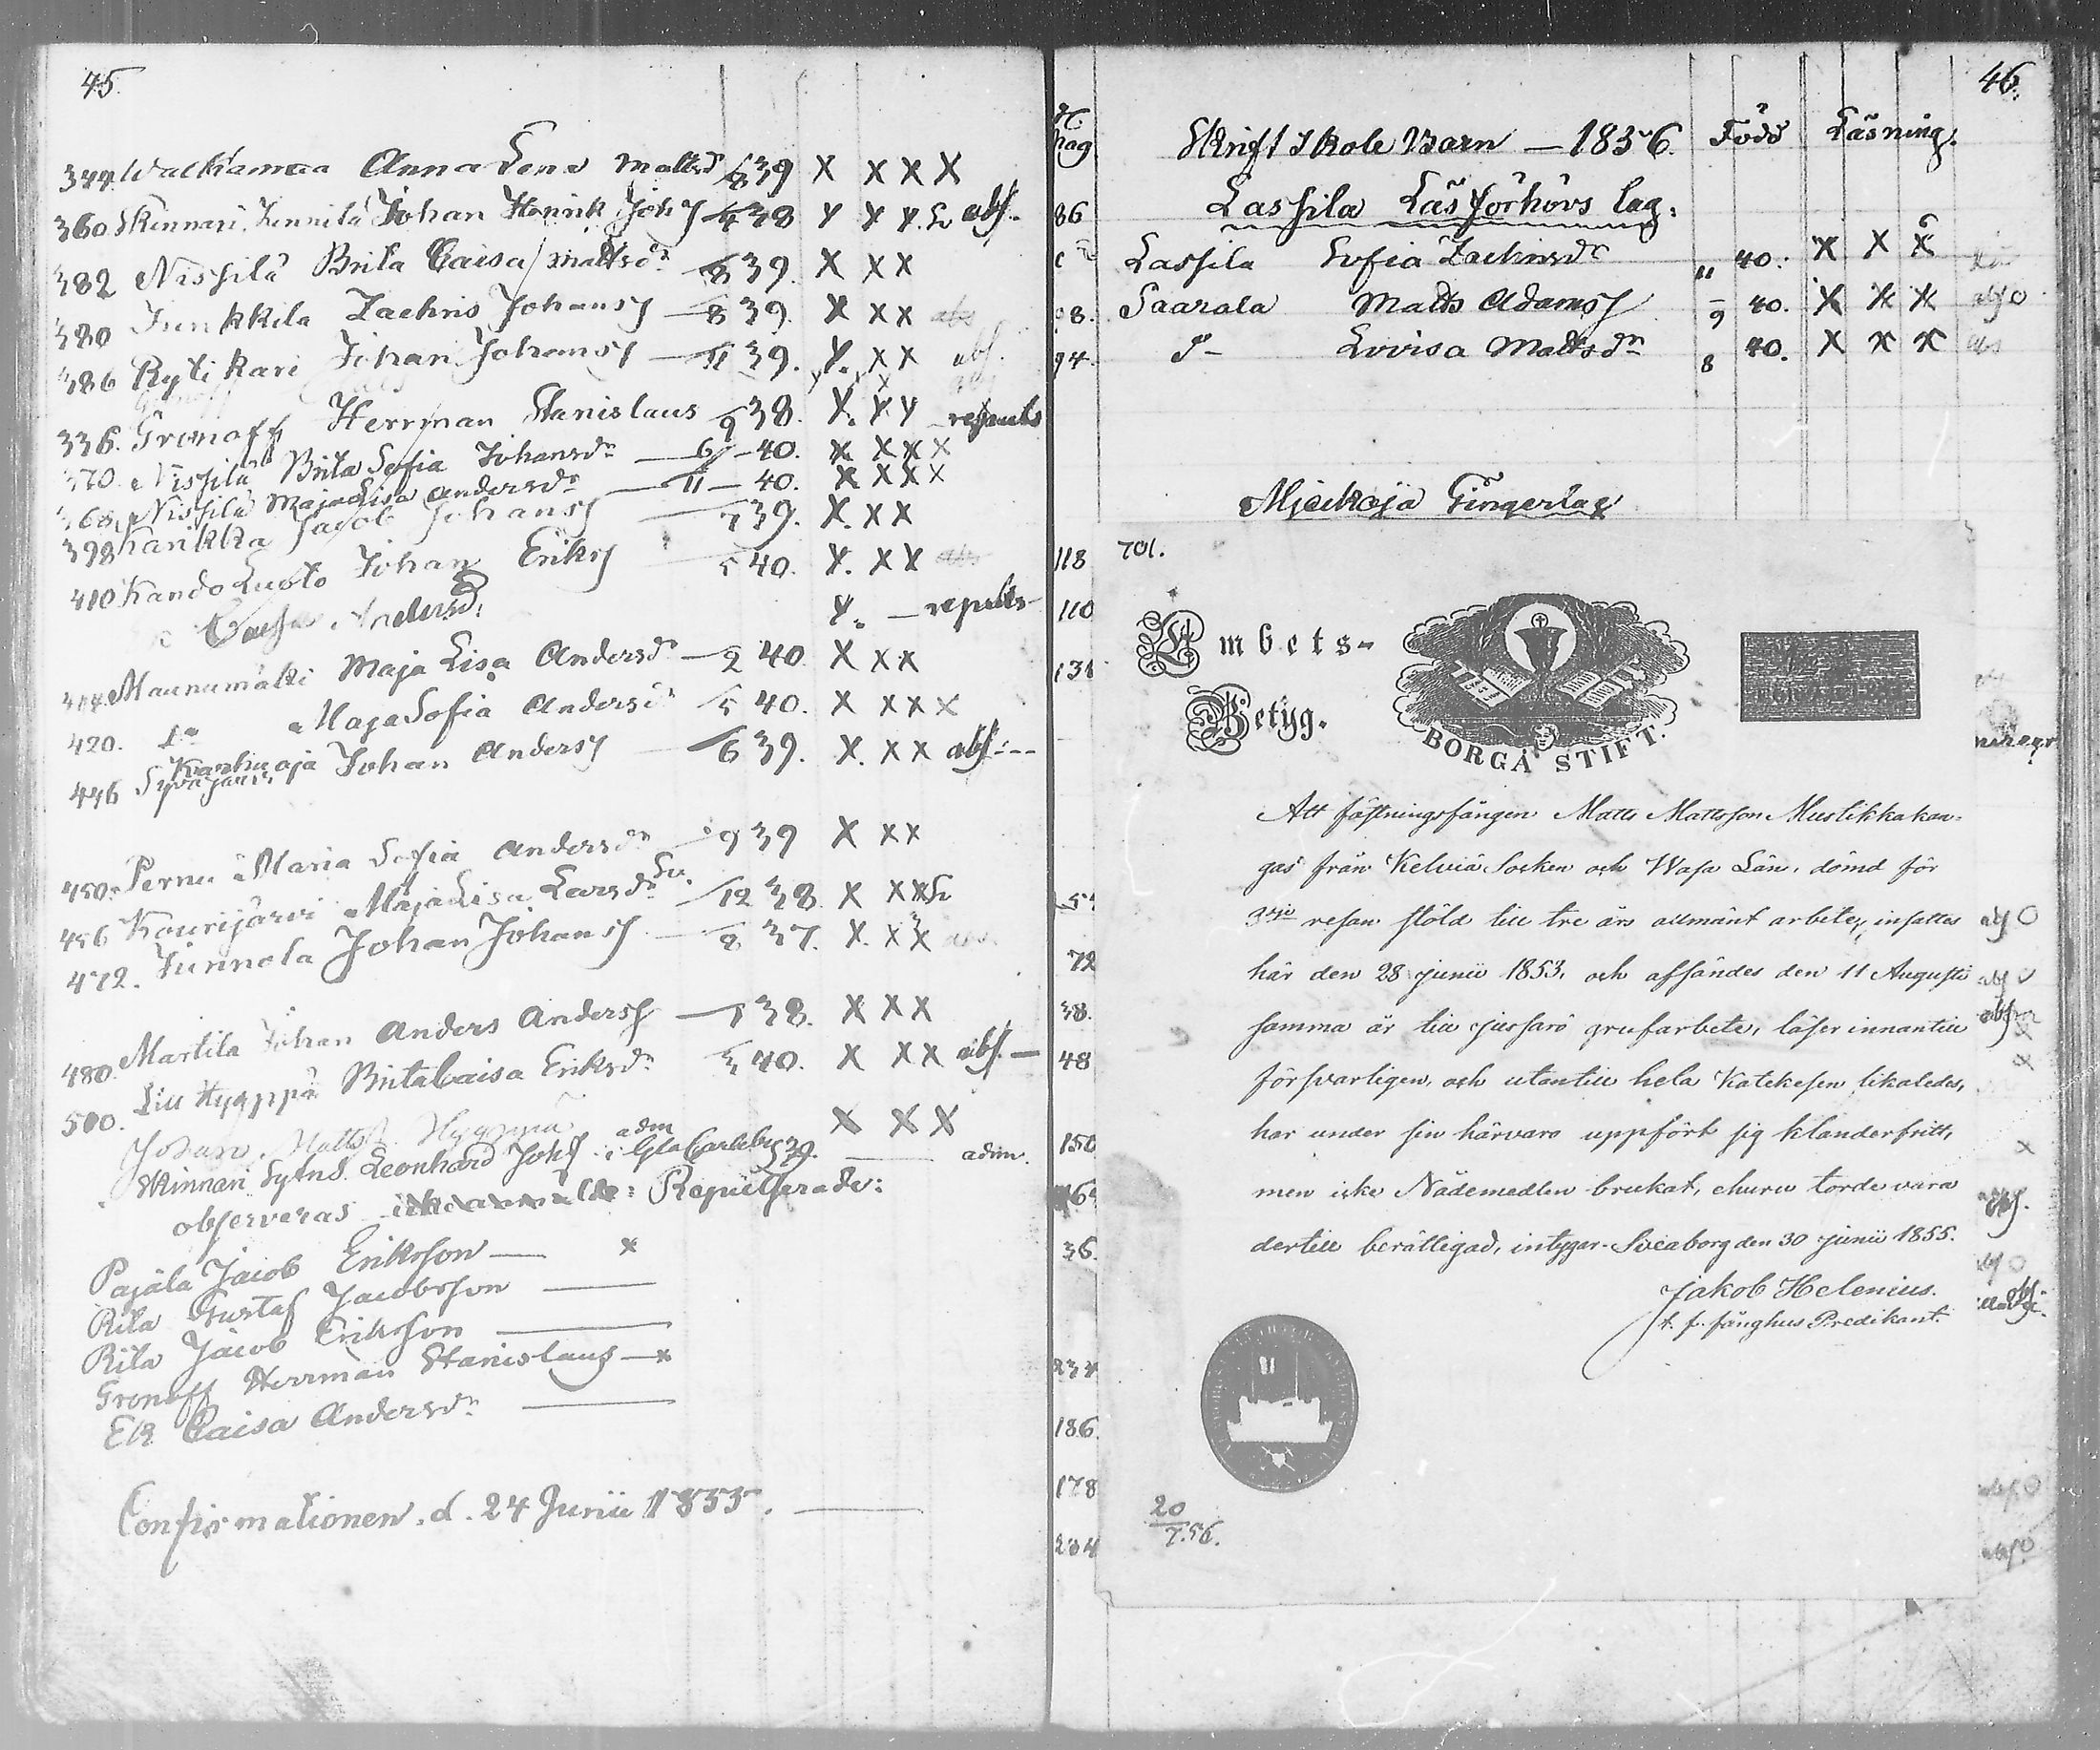 45.
344. Walkamaa Anna Lena Mattsdr 8 39 X X X X
360 Skinnari, Junnila Johan Henrik Johss 4 38 X X X. Sv abs.
382 Nissilä Brita Caisa Mattsdr 8 39. X X X
380 Junkkila Zachris Johanss 8 39. X X X abs
386 Rytikari Johan Johanss 11 39. X. X X abs.
336. Gronoff Herrman Stanislaus 9 38. X. X X repuls
370. Nissilä Brita Sofia Johansdr 6 40. X. X X X
368. Nissilä Maja Lisa Andersdr 11 40. X X X X
398 Karikka Jacob Johanss 7 39. X. X X
410 Kando Luoto Johan Erikss 5 40. X. X X abs
Caisa Andersdr X. repuls
414. Maunumäki Maja Lisa Andersdr 2 40 X X X
420. Do Maja Sofia Andersdr 5 40. X X X X
446 Syväjärvi Karhuoja Johan Anderss 6 39. X. X X abs.
450. Pernu Maria Sofia Andersdr 9 39 X X X
456 Kourijärvi Maja Lisa Larsdr Sv. 12 38. X X X Sv
472. Junnola Johan Johanss 8 37. X. X X abs.
480. Martila Johan Anders Anderss 7 38. X X X
500. Lill Hyyppä Brita Caisa Eriksdr 3 40. X X X abs.
Johan Matts. Hyyppä X X X
Skinnari Sytnd. Leonhard Johss adm i Gla Carleby 39. adm.
observeras Repulserade:
Pajala Jacob Eriksson — x
Rita Gustaf Jacobsson —
Rita Jacob Eriksson —
Gronoff Herrman Stanislaus — x
Ek Caisa Andersdr —
Confirmationen. d. 24 Junii 1855.
46.
pag
Skriftskole Barn — 1856. Född Läsning.
86 Lassila Läsförhörs lag.
Lassila Sofia Zachrisdr " 40. X X X
98. Saarala Matts Adamss 9 40. X X X abs o
94. d- Lovisa Mattsdr 8 40. X X X abs
Mjeikoja Gingerlag
118
110
131
72
38.
48
150
36.
234
186.
178
234
701.
Embets-
Betyg.
BORGÅ STIFT.
Att fästningsfången Matts Mattsson Mustikkakan-
gas från Kelviå Socken och Wasa Län, dömd för
3dje resan stöld till tre års allmänt arbete, insattes
här den 28 junii 1853, och affändes den 11 Augusti
samma år till Jussarö grufarbete, läser innantill
försvarligen, och utantill hela Katekesen likaledes,
har under sin härvaro uppfört sig klanderfritt,
men icke Nådemedlen brukat, ehuru torde vara
dertill berättigad, intygar. Sveaborg den 30 junii 1855.
Jakob Helenius.
t. f. fånghus Predikant.
20
7.56.